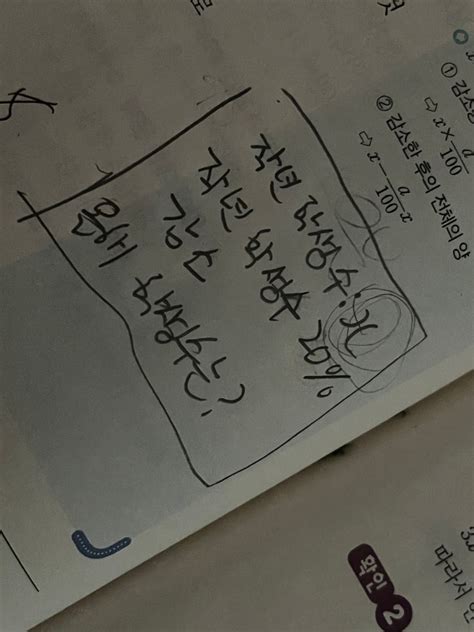 ① 감소
⇨ x × a/100
② 감소한 후의 전체의 양
⇨ x − a/100 x
작년 학생수: x
작년 학생수 20%
감소
올해 학생수는?
확인 2
따라서